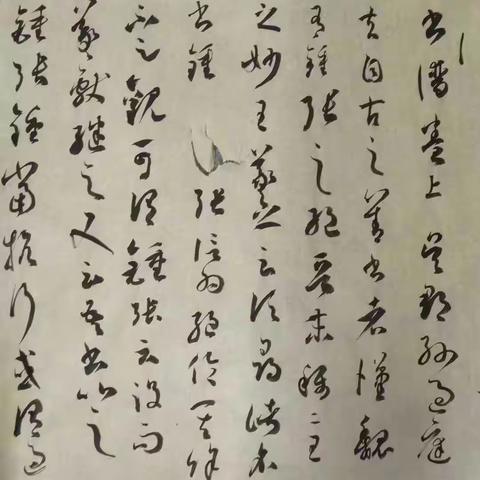 書譜卷上 吳郡孫過庭
夫自古之善書者漢魏
有鍾張之絕晉末稱二王
之妙王羲之云頃尋諸名
書鍾張信為絕倫其餘
不足觀可謂鍾張云沒而
羲獻繼之又云吾書比之
鍾張鍾當抗行或謂過